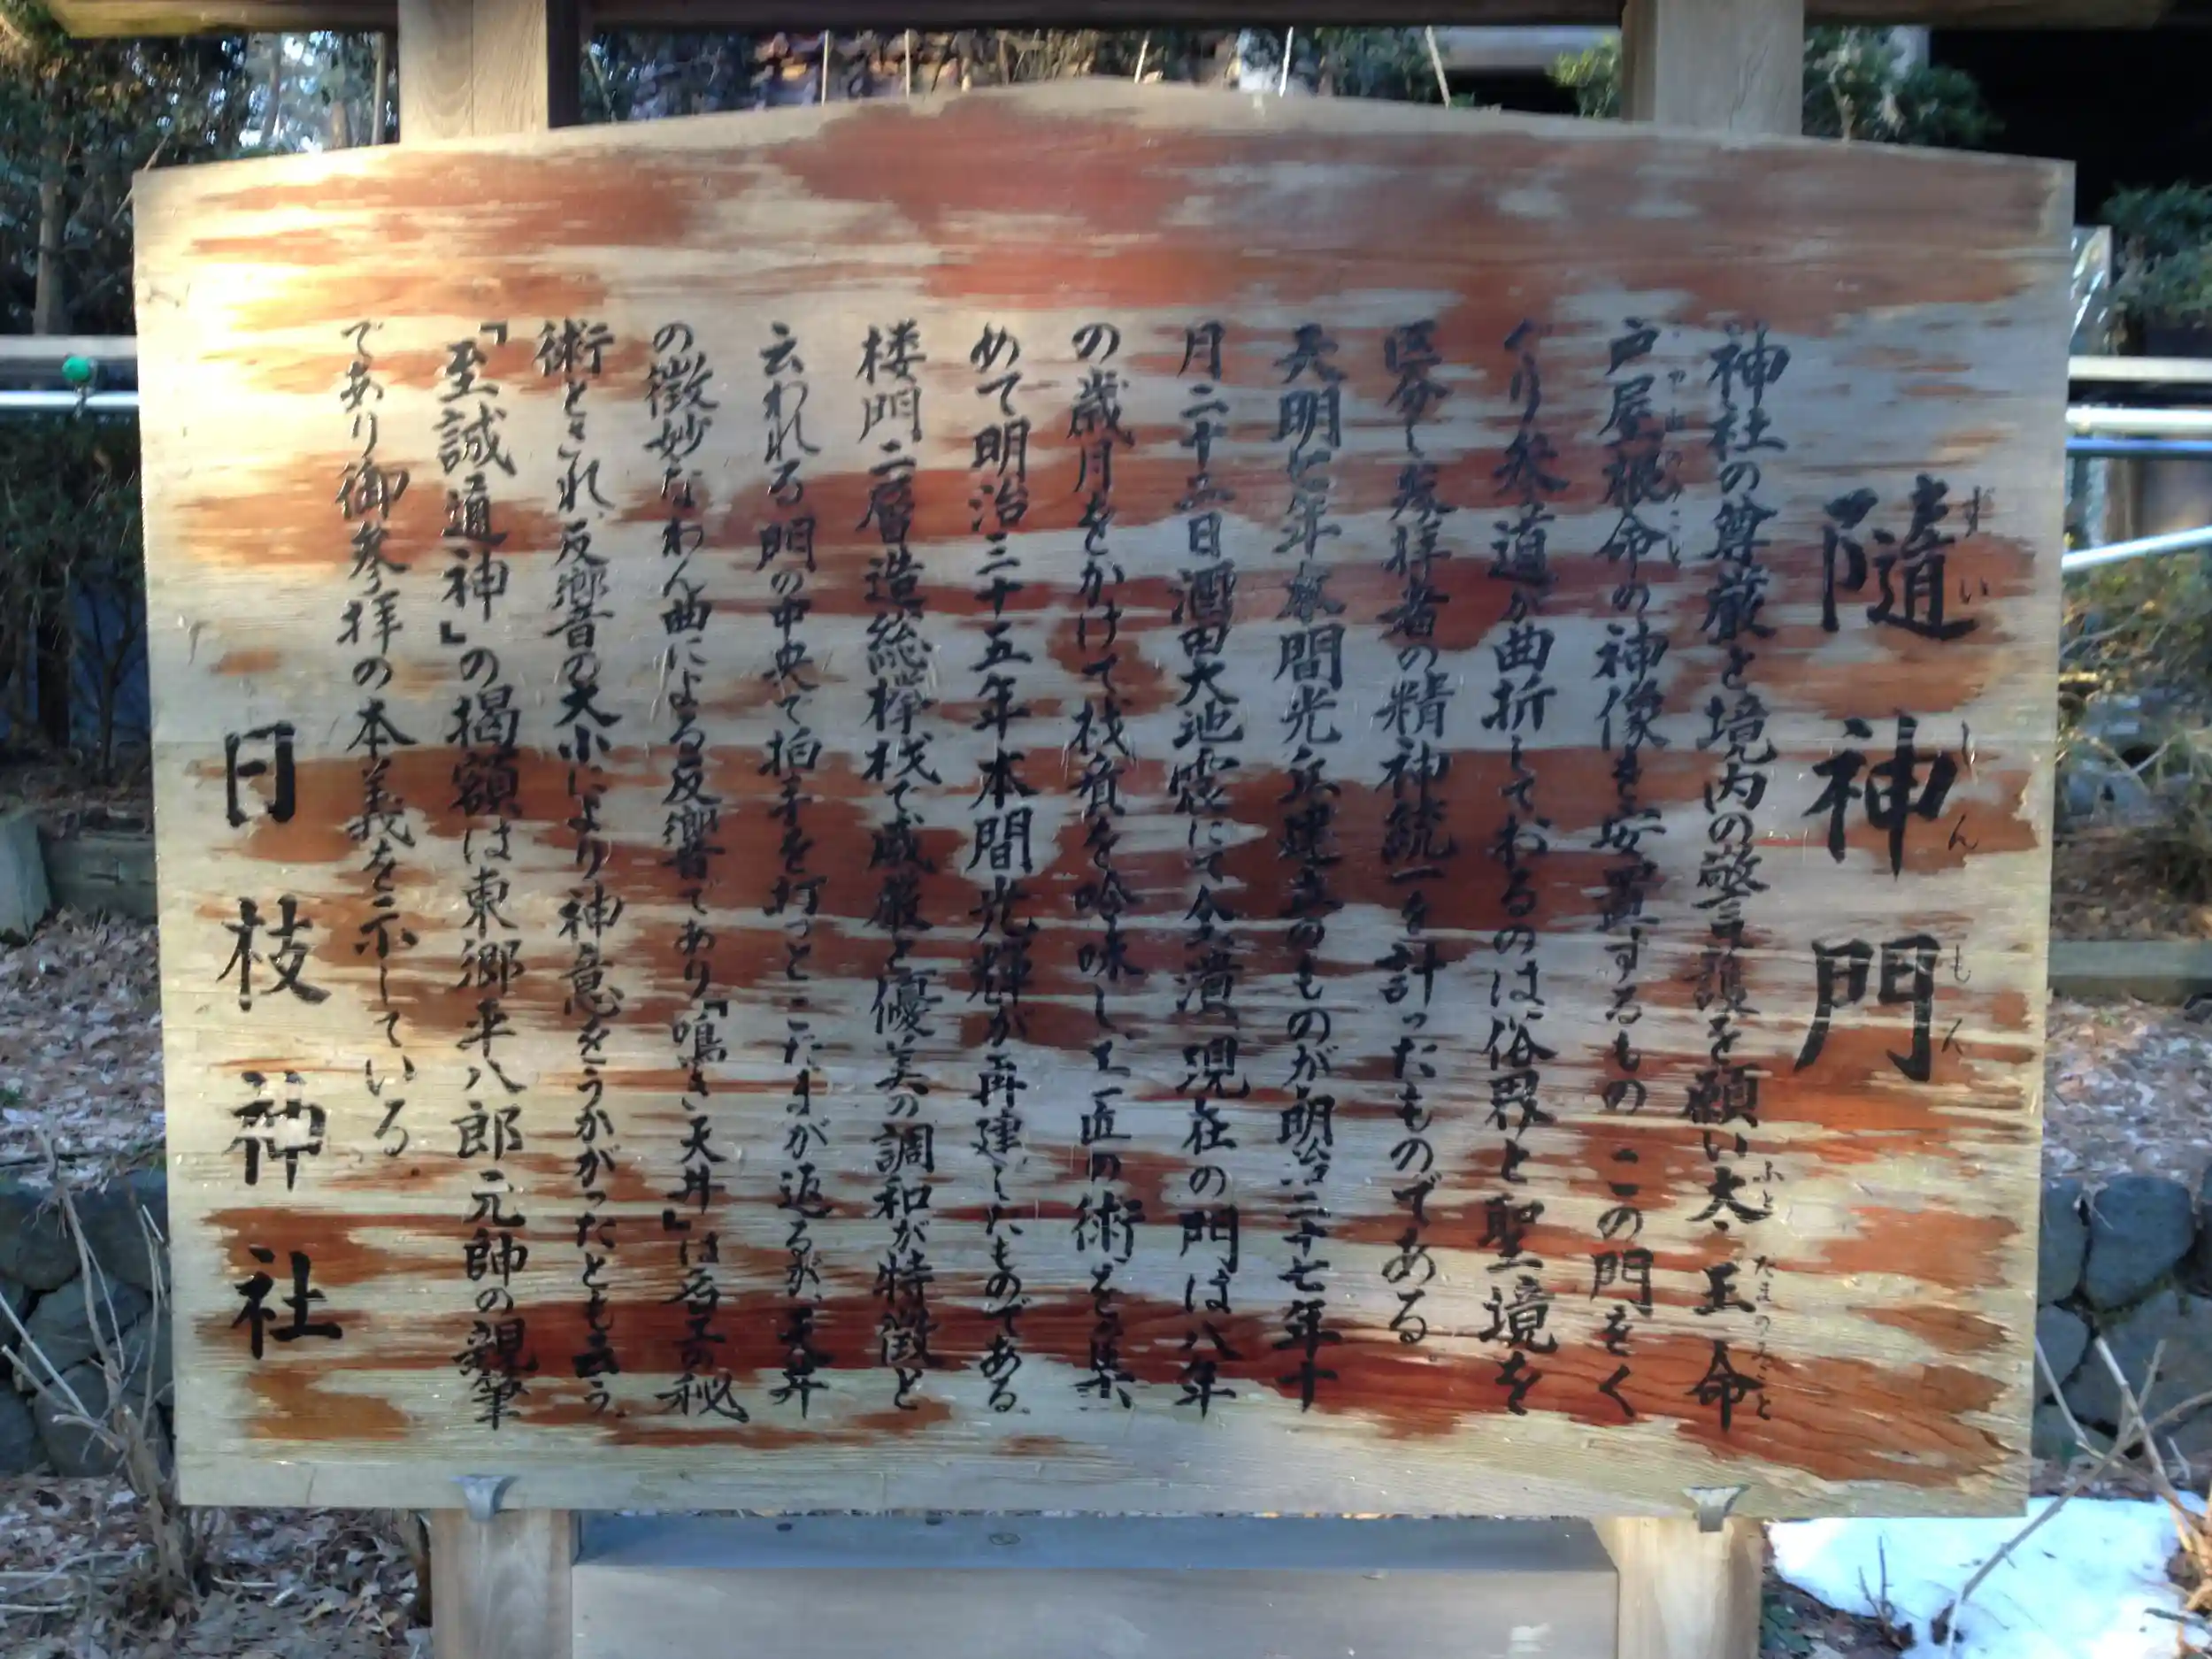 隨神門
ずいしんもん
神社の尊厳と境内の警護を願い太玉命
ふとたまのみこと
戸屋概命の神像を安置するもの この門をく
ぐり参道が曲折しておるのは俗界と聖境を
区分し参拝者の精神統一を計ったものである。
天明七年本間光丘建立のものが明治二十七年十
月二十二日酒田大地震にて全潰、現在の門は八年
の歳月をかけて材質を吟味し、工匠の術を集
めて明治三十五年本間光輝が再建したものである
楼門二層造総欅材で威厳と優美の調和が特徴と
云われる門の中央で拍手を打つとこだまが返るが、天井
の微妙なわん曲による反響であり『鳴き天井』は名工の秘
術とされ、反響音の大小により神意をうかがったとも云う。
『至誠通神』の掲額は東郷平八郎元帥の親筆
であり御参拝の本義を示している。
日枝神社